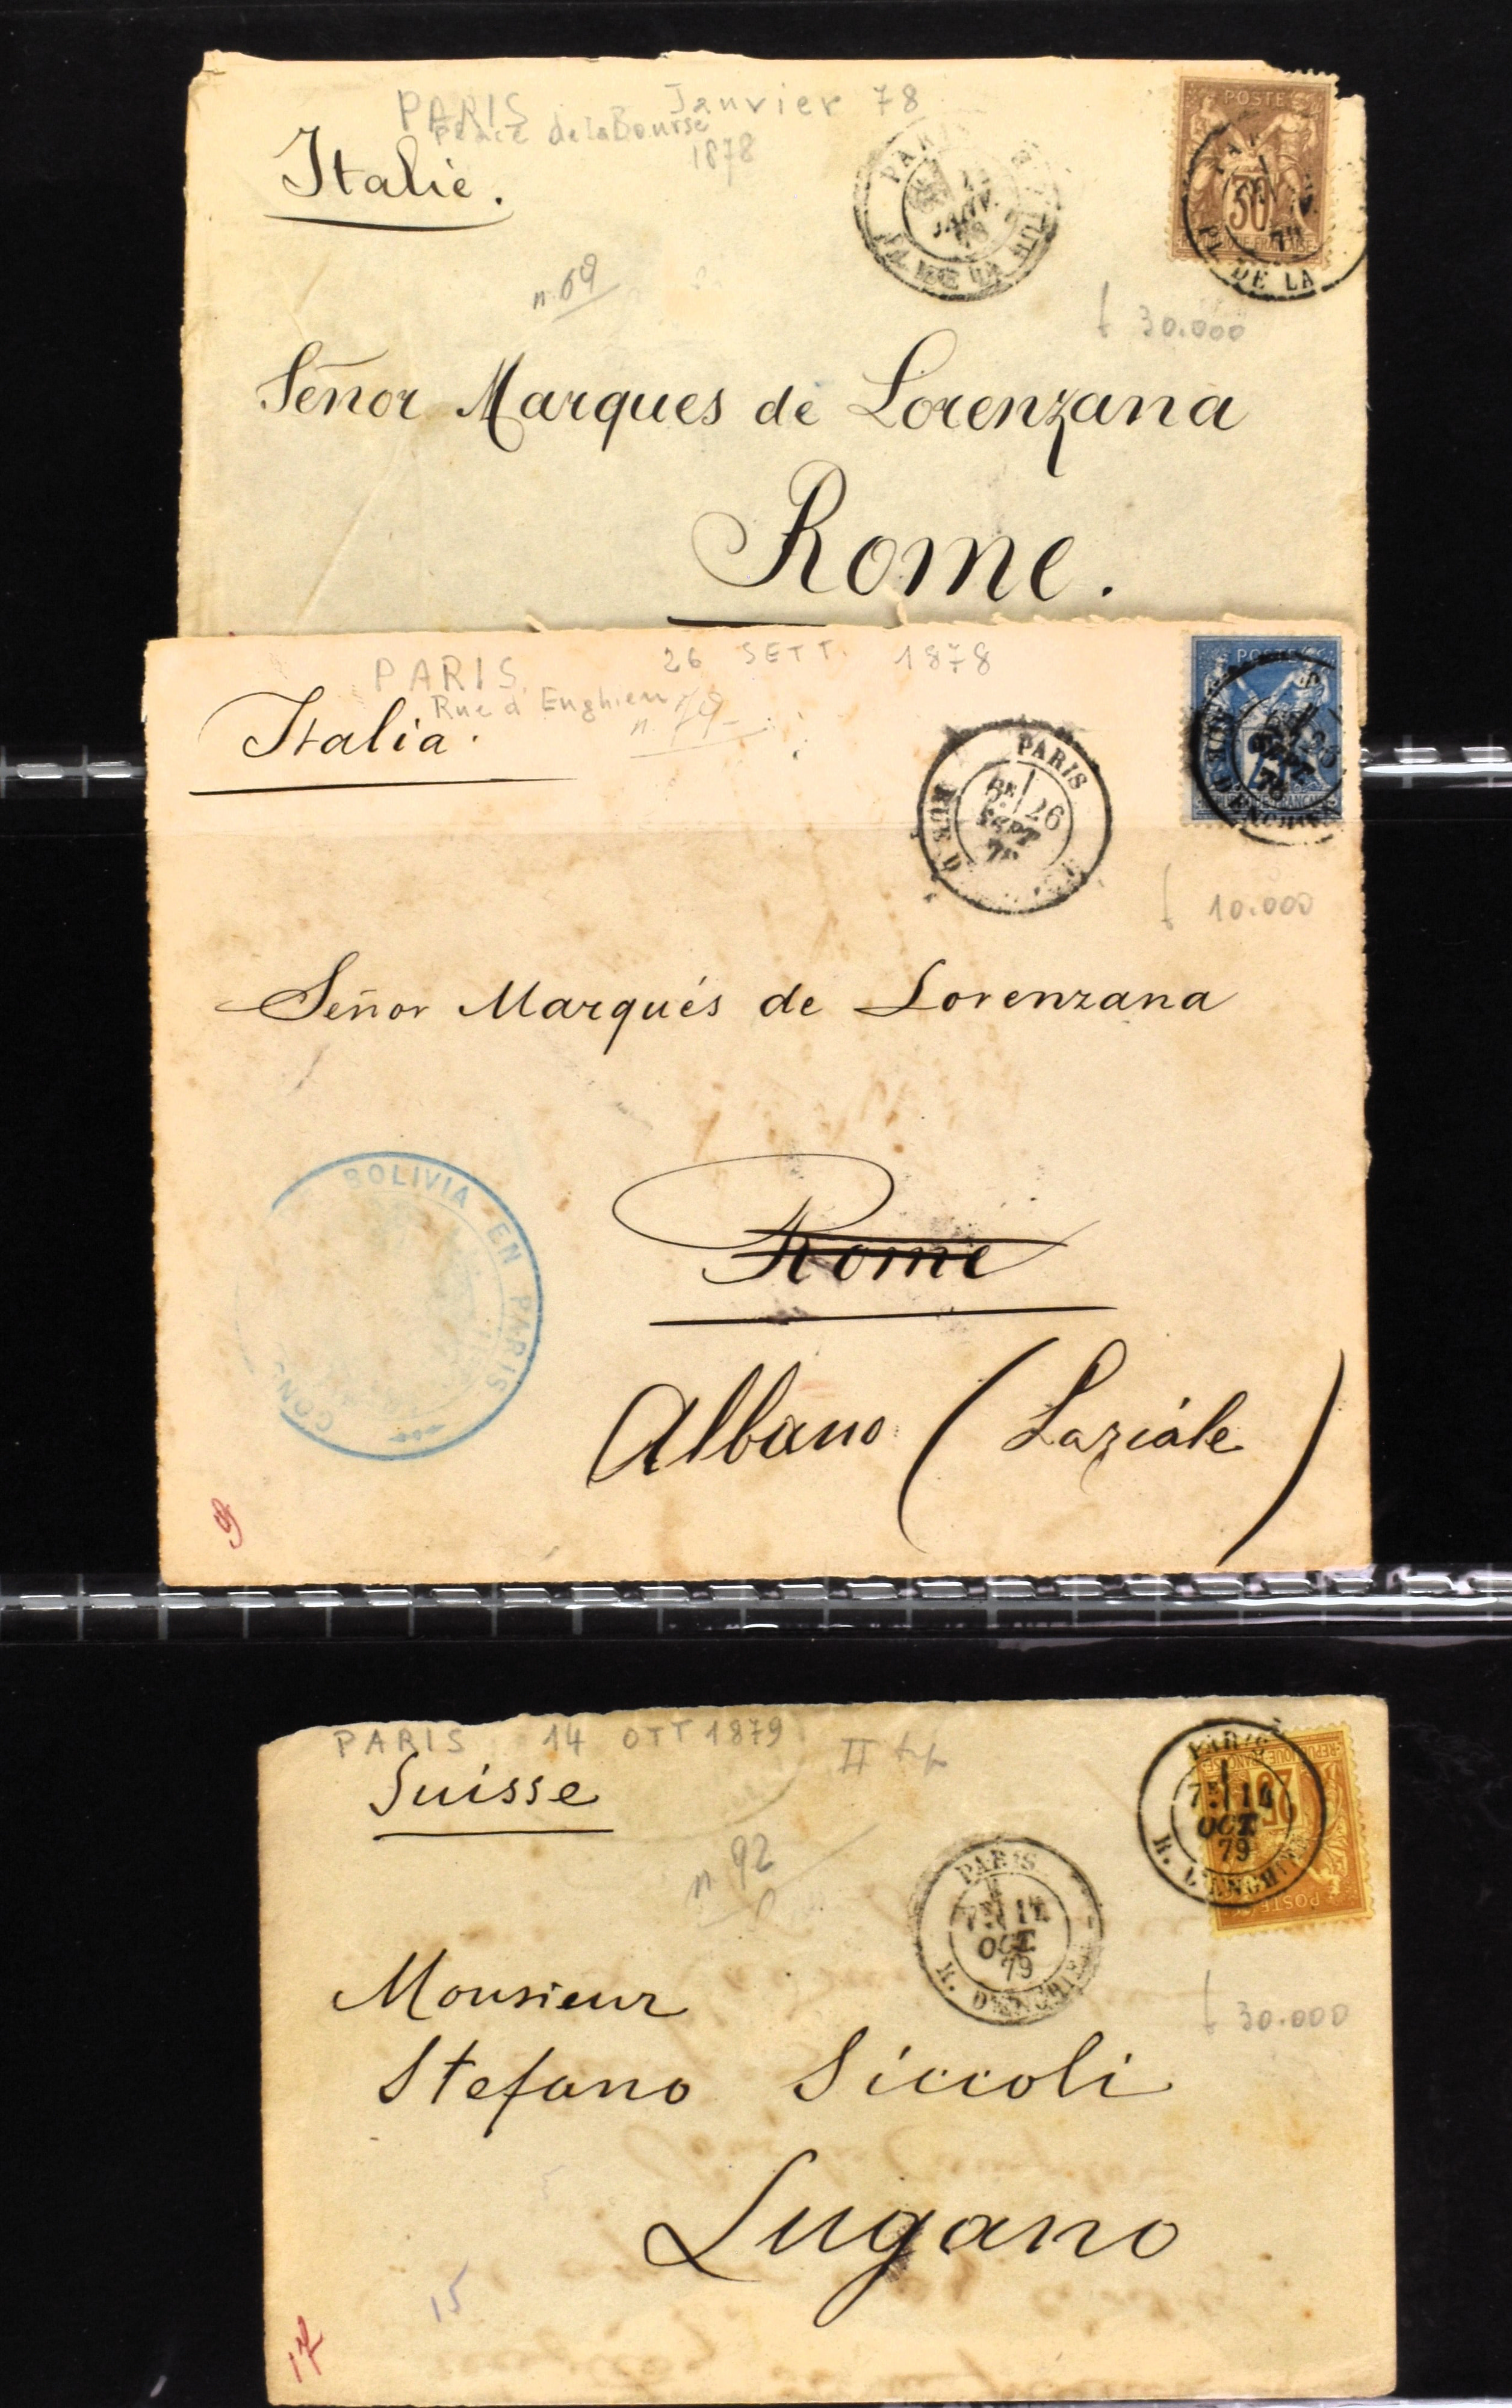 PARIS Janvier 78
Place de la Bourse
1878
Italie.
n. 69
PARIS
JANV.
78
POSTES
30
PL. DE LA
£ 30.000
Señor Marques de Lorenzana
Rome.
PARIS 26 SETT. 1878
Rue d'Enghien
n. 79
Italia.
PARIS
26
SEPT
78
RUE D
SEPT
78
RUE D'ENGHIEN
£ 10.000
Señor Marqués de Lorenzana
BOLIVIA EN PARIS
CON
Rome
Albano (Laziale)
9
PARIS 14 OTT 1879 II
Suisse
n 92
PARIS
7E 14
OCT
79
R. D'ENGHIEN
PARIS
7E 14
OCT
79
R. D'ENGHIEN
REPUBLIQUE FRANÇAISE
25
POSTES
£ 30.000
Monsieur
Stefano Siccoli
Lugano
15
17